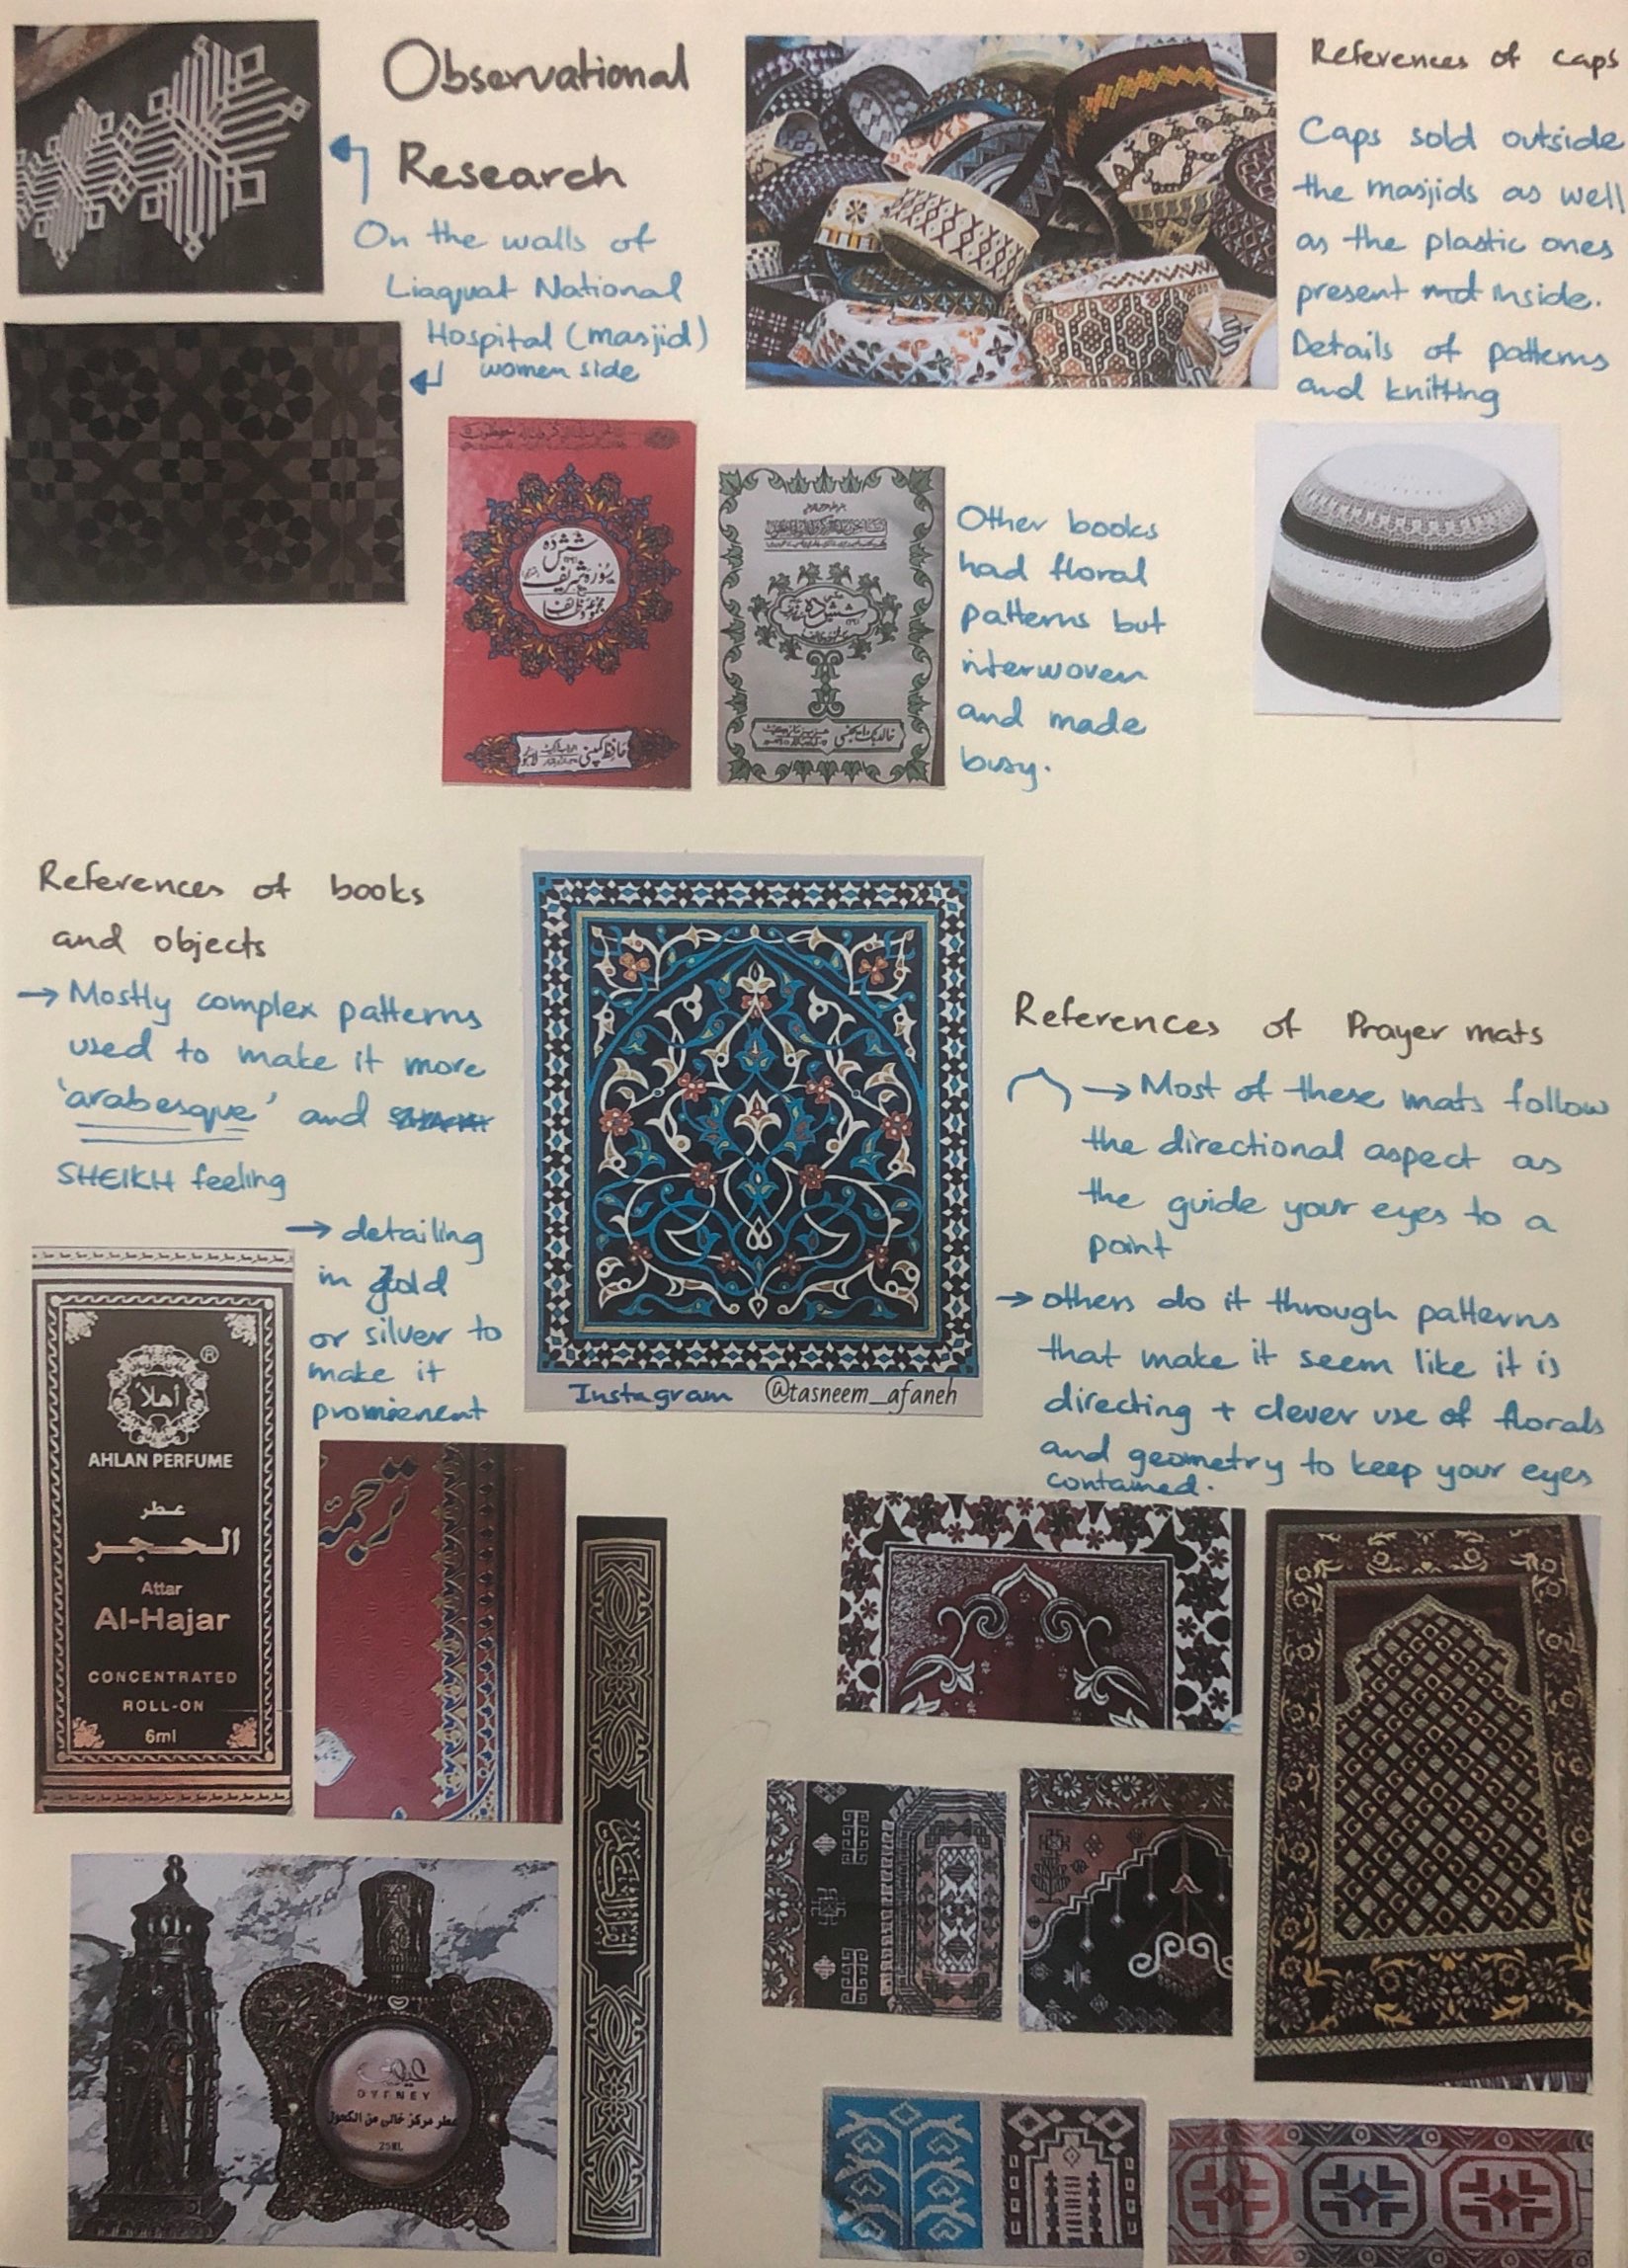 Observational
Research
On the walls of
Liaquat National
Hospital (masjid)
women side
References of caps
Caps sold outside
the masjids as well
as the plastic ones
present inside.
Details of patterns
and knitting
شش ده
سورہ شریف
مجموعہ وظائف
حافظ کمپنی
لاہور
شش ده
خالد بک ایجنسی
Other books
had floral
patterns but
interwoven
and made
busy.
References of books
and objects
→ Mostly complex patterns
used to make it more
'arabesque' and
SHEIKH feeling
→ detailing
in gold
or silver to
make it
promienent
Instagram @tasneem_afaneh
References of Prayer mats
→ Most of these mats follow
the directional aspect as
the guide your eyes to a
point
→ others do it through patterns
that make it seem like it is
directing + clever use of florals
and geometry to keep your eyes
contained.
أهلا
®
AHLAN PERFUME
عطر
الحجر
Attar
Al-Hajar
CONCENTRATED
ROLL-ON
6ml
ترجمہ
عطر مركز خالي من الكحول